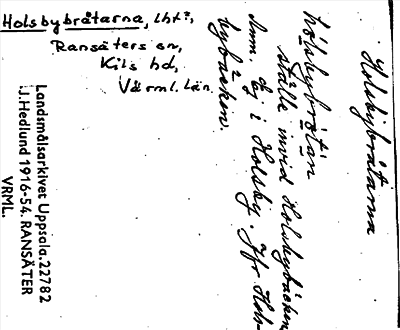 Holsbybråtarna, lht?,
Ransäters sn,
Kils hd,
Värml. län.
Holsbybråtarna
hòlsbybrɷ̀tan
ställe invid Holsbybäcken
ej i Holsby. Jfr Hols-
bybäcken.
Landsmålsarkivet Uppsala. 22782
J. Hedlund 1916-54. RANSÄTER
VRML.